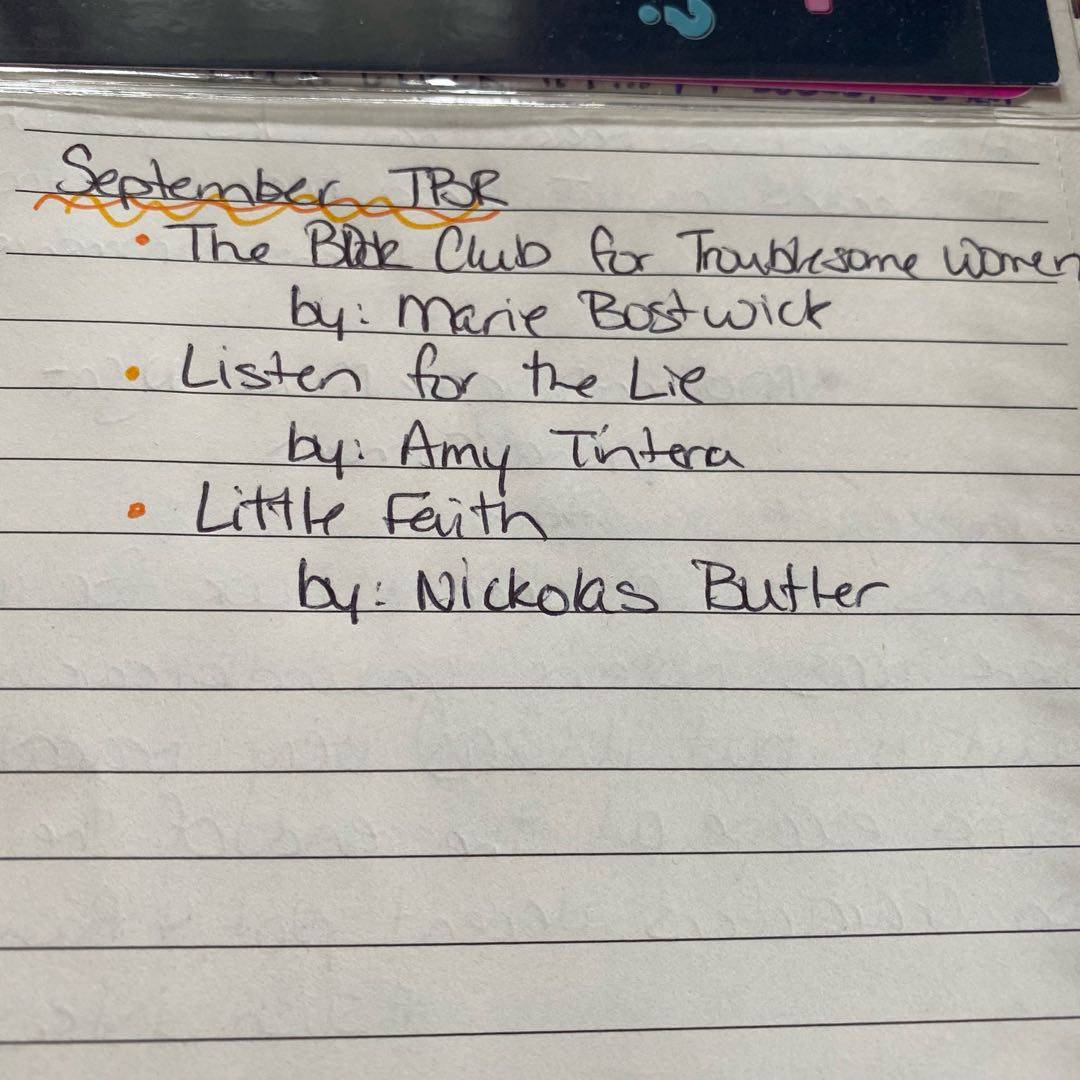 ?
September TBR
• The Book Club for Troublesome Women
by: Marie Bostwick
• Listen for the Lie
by: Amy Tintera
• Little Faith
by: Nickolas Butler